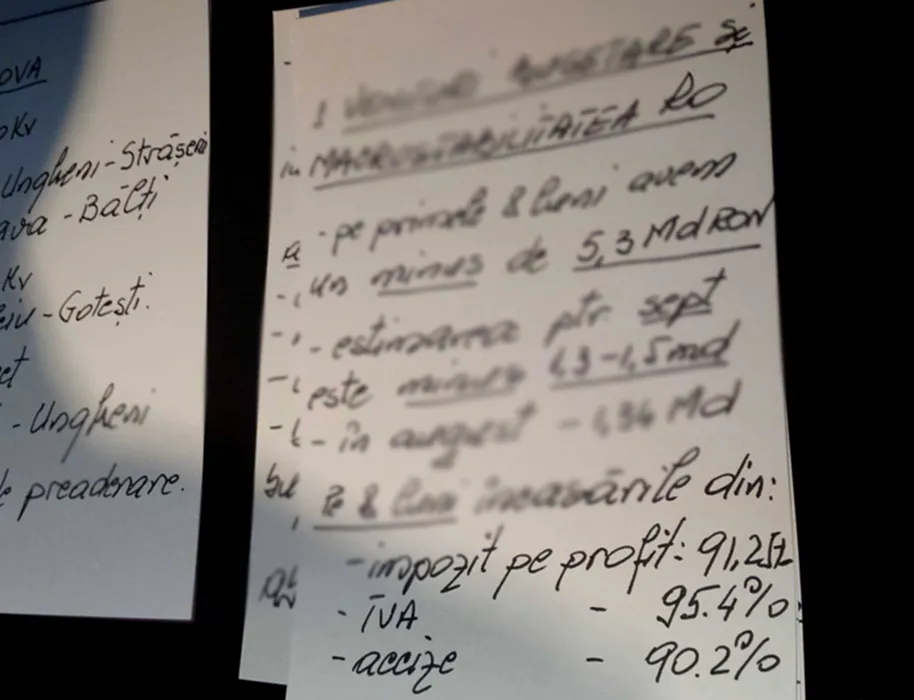 OVA
Kv
Ungheni-Strășeni
- Bălți
Kv
- Gotești.
- Ungheni
preaderare.
1 VENITURI BUGETARE și
în MACROSTABILITATEA RO
- pe primele 8 luni avem
un minus de 5,3 Md RON
- estimarea ptr. sept
este minus 1,3-1,5 md
- în august - 1,34 Md
Pe 8 luni încasările din:
- impozit pe profit: 91,2
- TVA - 95.4%
- accize - 90.2%